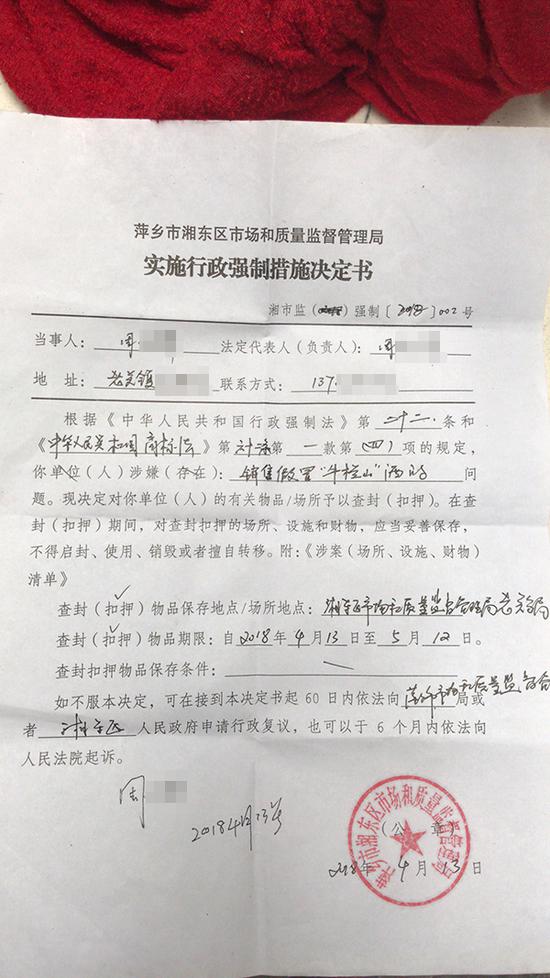 萍乡市湘东区市场和质量监督管理局
实施行政强制措施决定书
湘市监( )强制〔2018〕002号
当事人: 周 法定代表人(负责人): 周
地 址: 老关镇 联系方式: 137
根据《中华人民共和国行政强制法》第二十二条和
《中华人民共和国商标法》第 第一款第(四)项的规定,
你单位(人)涉嫌(存在): 销售假冒"牛栏山"酒的 问
题。现决定对你单位(人)的有关物品/场所予以查封(扣押)。在查
封(扣押)期间,对查封扣押的场所、设施和财物,应当妥善保存,
不得启封、使用、销毁或者擅自转移。附:《涉案(场所、设施、财物)
清单》
查封(扣押)物品保存地点/场所地点: 湘东区市场和质量监督管理局老关分局
查封(扣押)物品期限:自2018年4月13日至5月12日。
查封扣押物品保存条件:
如不服本决定,可在接到本决定书起 60 日内依法向萍乡市市场和质量监督管理局或
者 湘东区 人民政府申请行政复议,也可以于 6 个月内依法向
人民法院起诉。
周
2018 4月13号
萍乡市湘东区市场和质量监督管理局
(公 章)
2018年 4月 13日